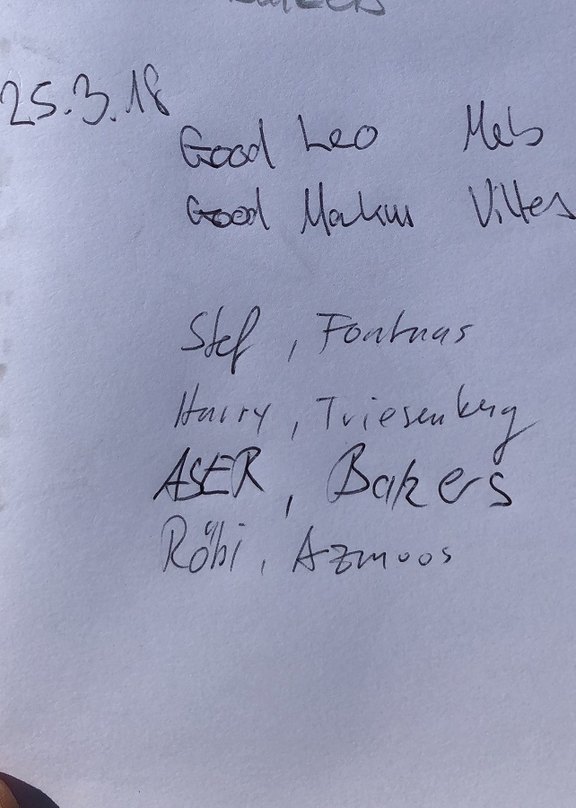 25.3.18
Good Leo Mels
Good Markus Vilters
Stef, Fontnas
Harry, Triesenberg
ASER, Bakers
Röbi, Azmoos